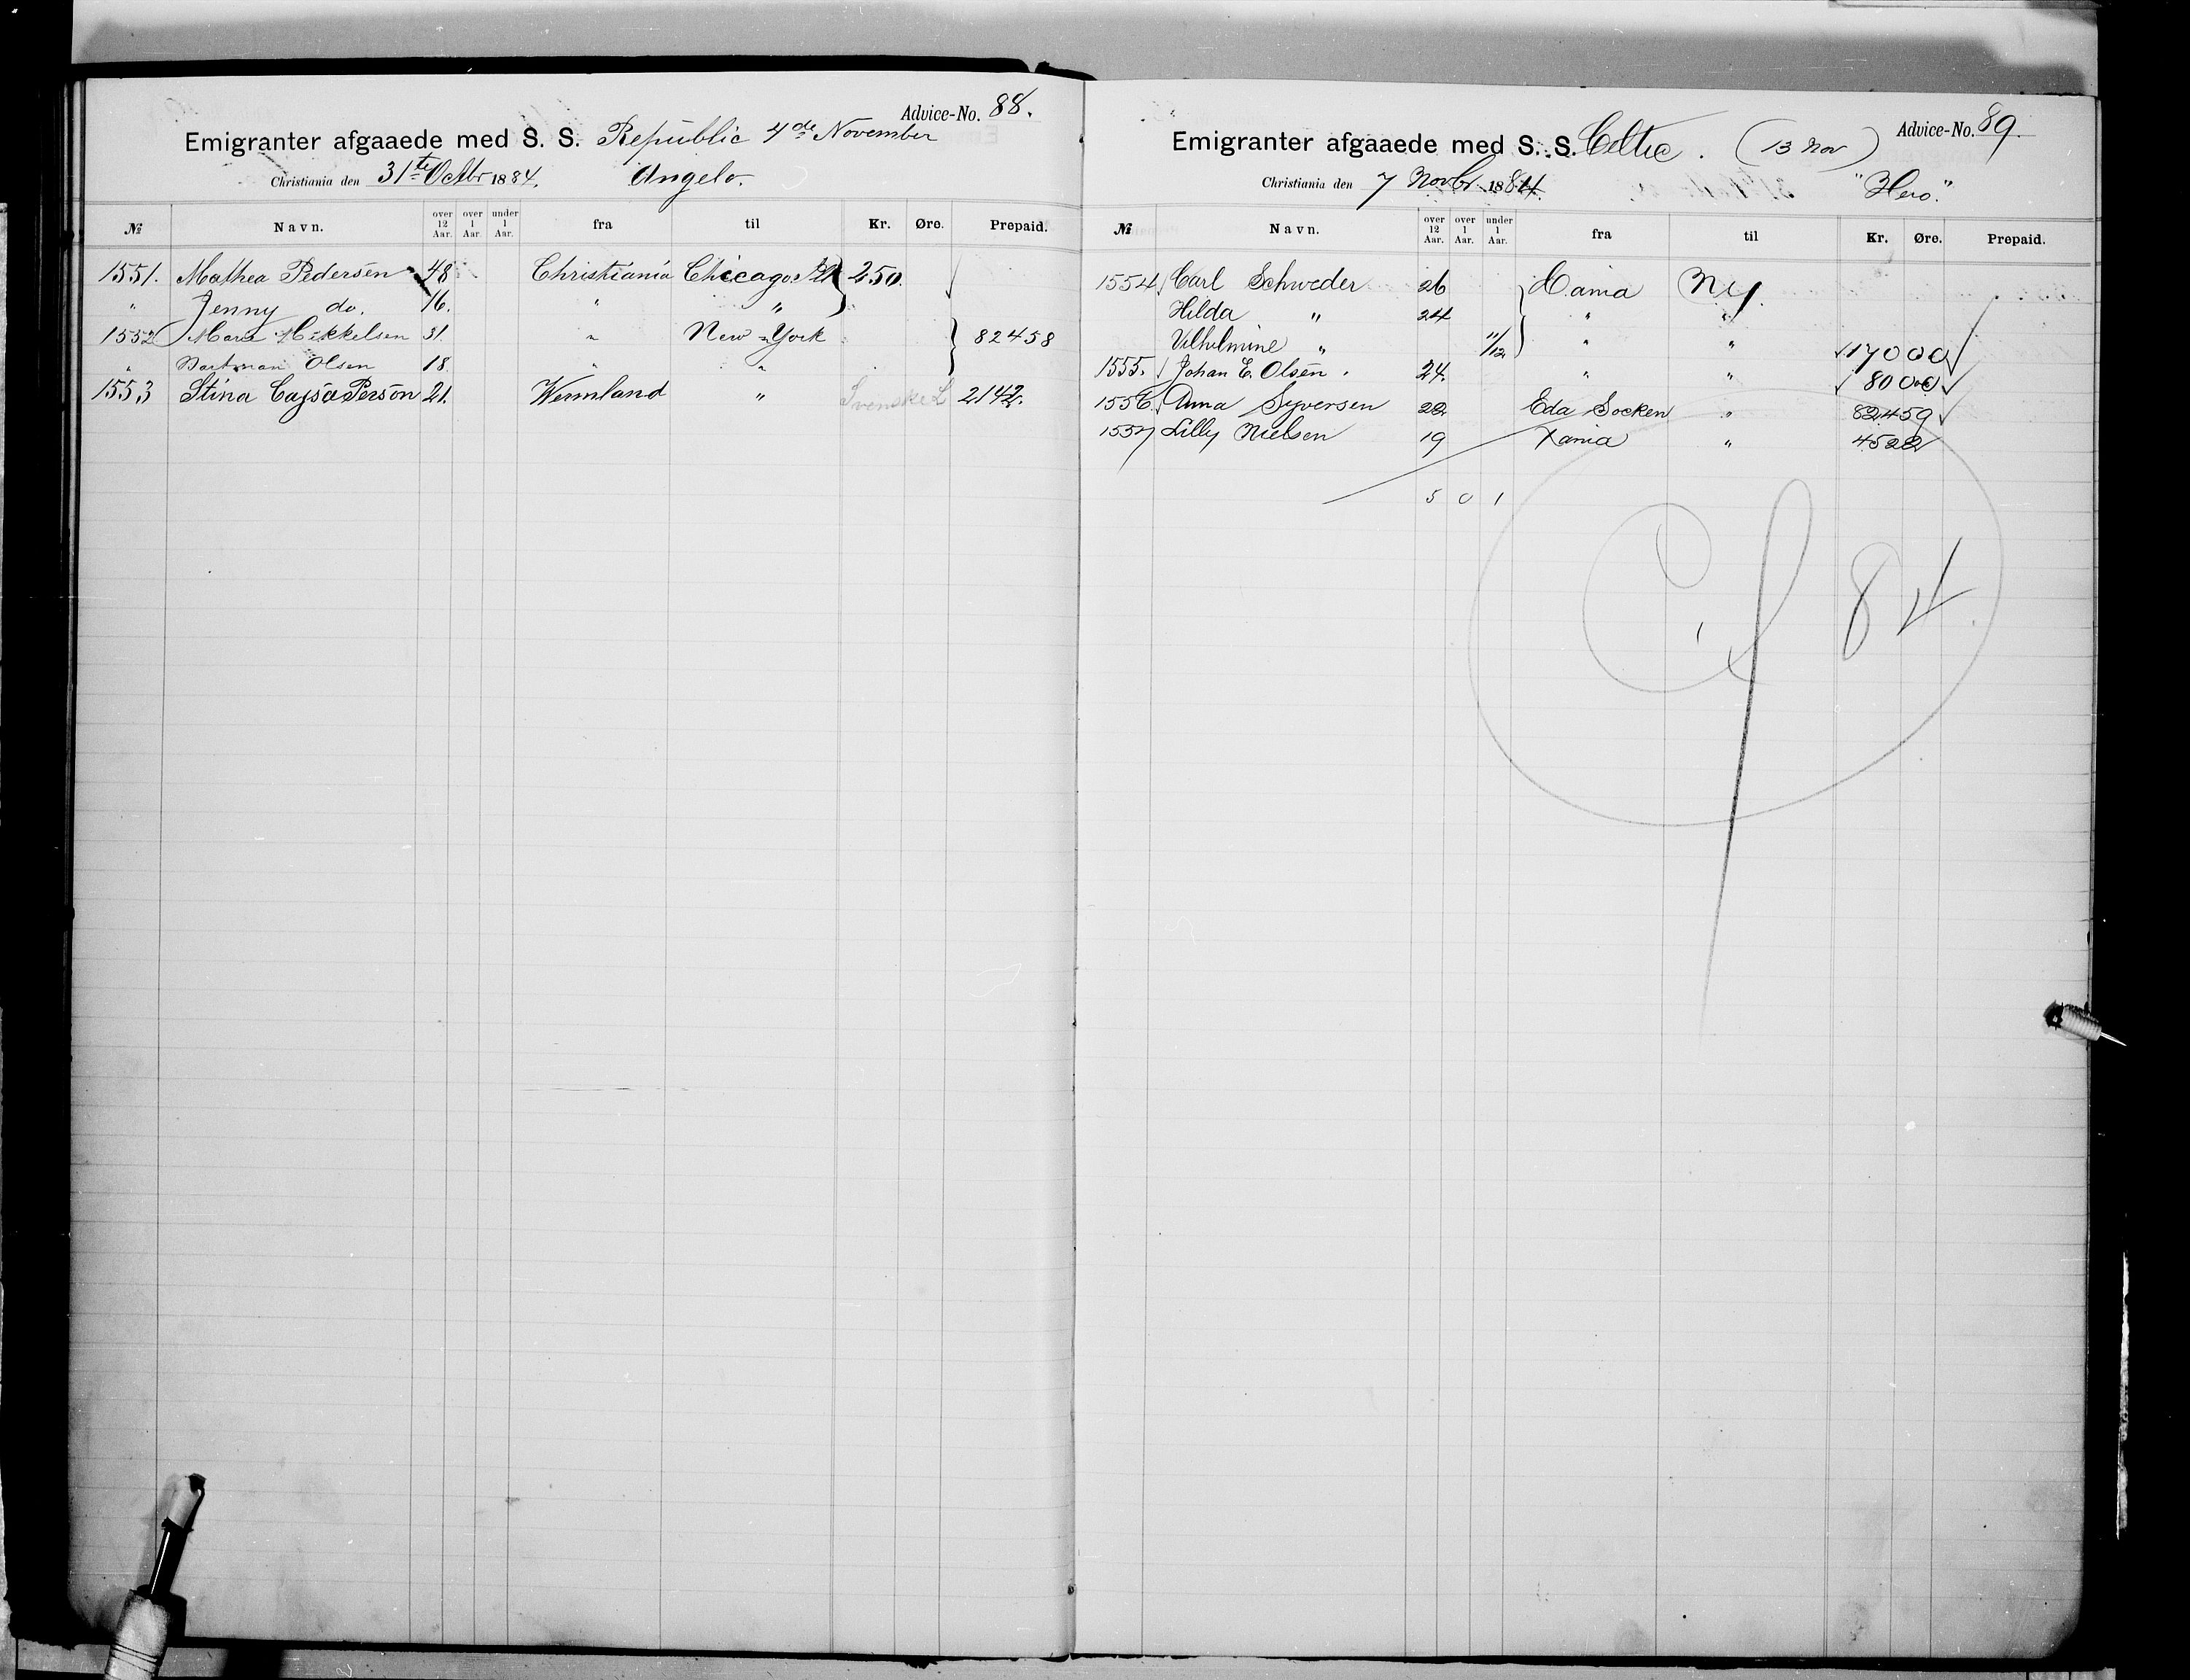 Advice-No. 88.
Emigranter afgaaede med S. S. Republic 4de November
Christiania den 31te Octbr 1884. Angelo.
№ Navn. over 12 Aar. over 1 Aar. under 1 Aar. fra til Kr. Øre. Prepaid.
1551. Mathea Pedersen 48 Christiania Chicago 250.
" Jenny do. 16. " "
1552 Maria Mikkelsen 31. " New-York 82458
" Olsen 18. " "
1553 Stina Cajsa Person 21. Wermland " Svenske L 2142.
Advice-No. 89.
Emigranter afgaaede med S. S. Celtic. (13 Nov)
Christiania den 7 Novbr. 1884. "Hero."
№ Navn. over 12 Aar. over 1 Aar. under 1 Aar. fra til Kr. Øre. Prepaid.
1554 Carl Schweder 26 Xania Ny.
Hilda " 24 " "
Vilhelmine " 11/12 " " 170 00
1555. Johan E. Olsen. 24. " " 80 00
1556. Anna Syversen 22 Eda Socken " 82459
1557 Lilly Nielsen 19 Xania " 4522
5 0 1
84